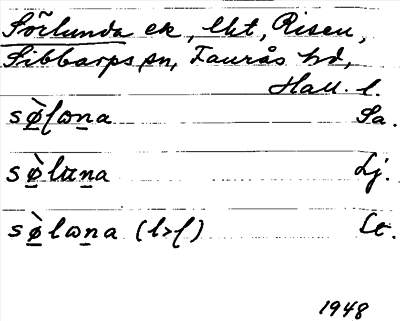 Sörlunda ek, lht, Risen,
Sibbarps sn, Faurås hd,
Hall. l.
sø̠̀ſωn̠a Sa.
sø̠̀lαn̠a Lj.
sø̠̀lωn̠a (l>ſ) Lt.
1948